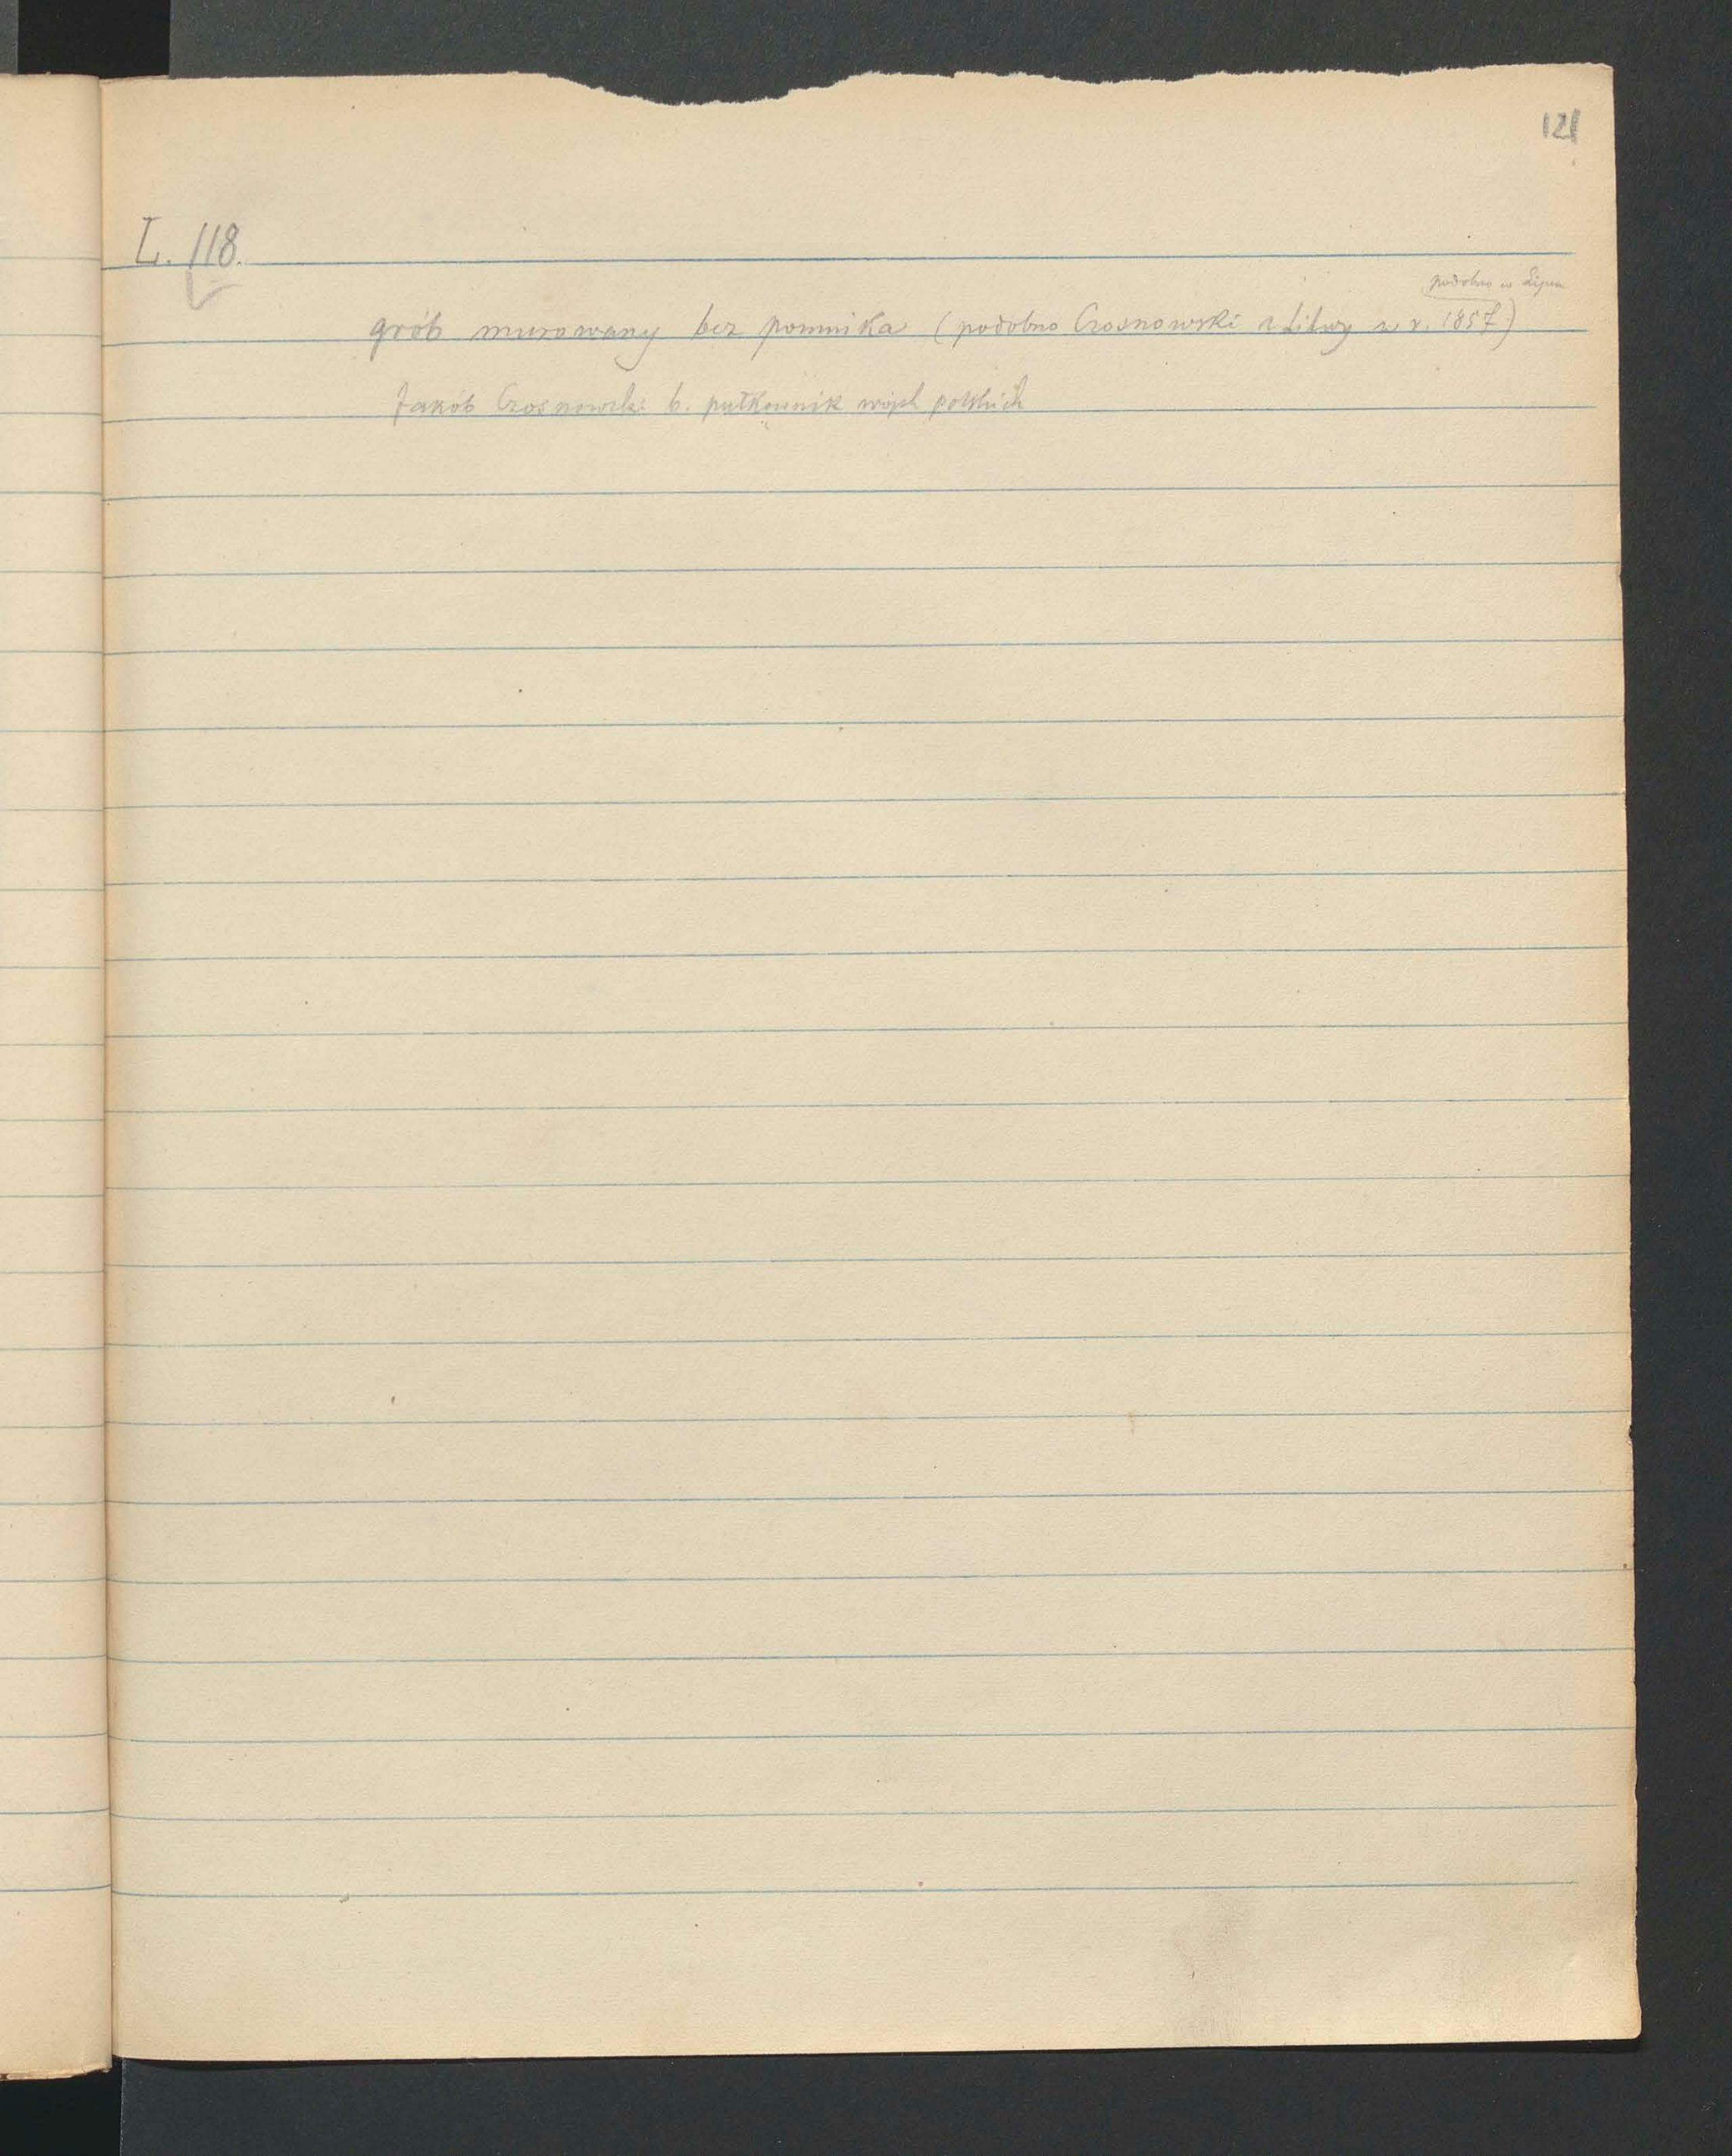 121
L. 118.
podobno w Lipcu
grób murowany bez pomnika (podobno Czosnowski z Litwy w r. 1857)
Jakób Czosnowski b. pułkownik wojsk polskich